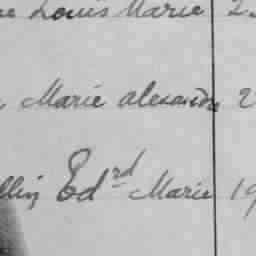 Louis Marie 2
Marie alexandre 2
Edrd Marie 19